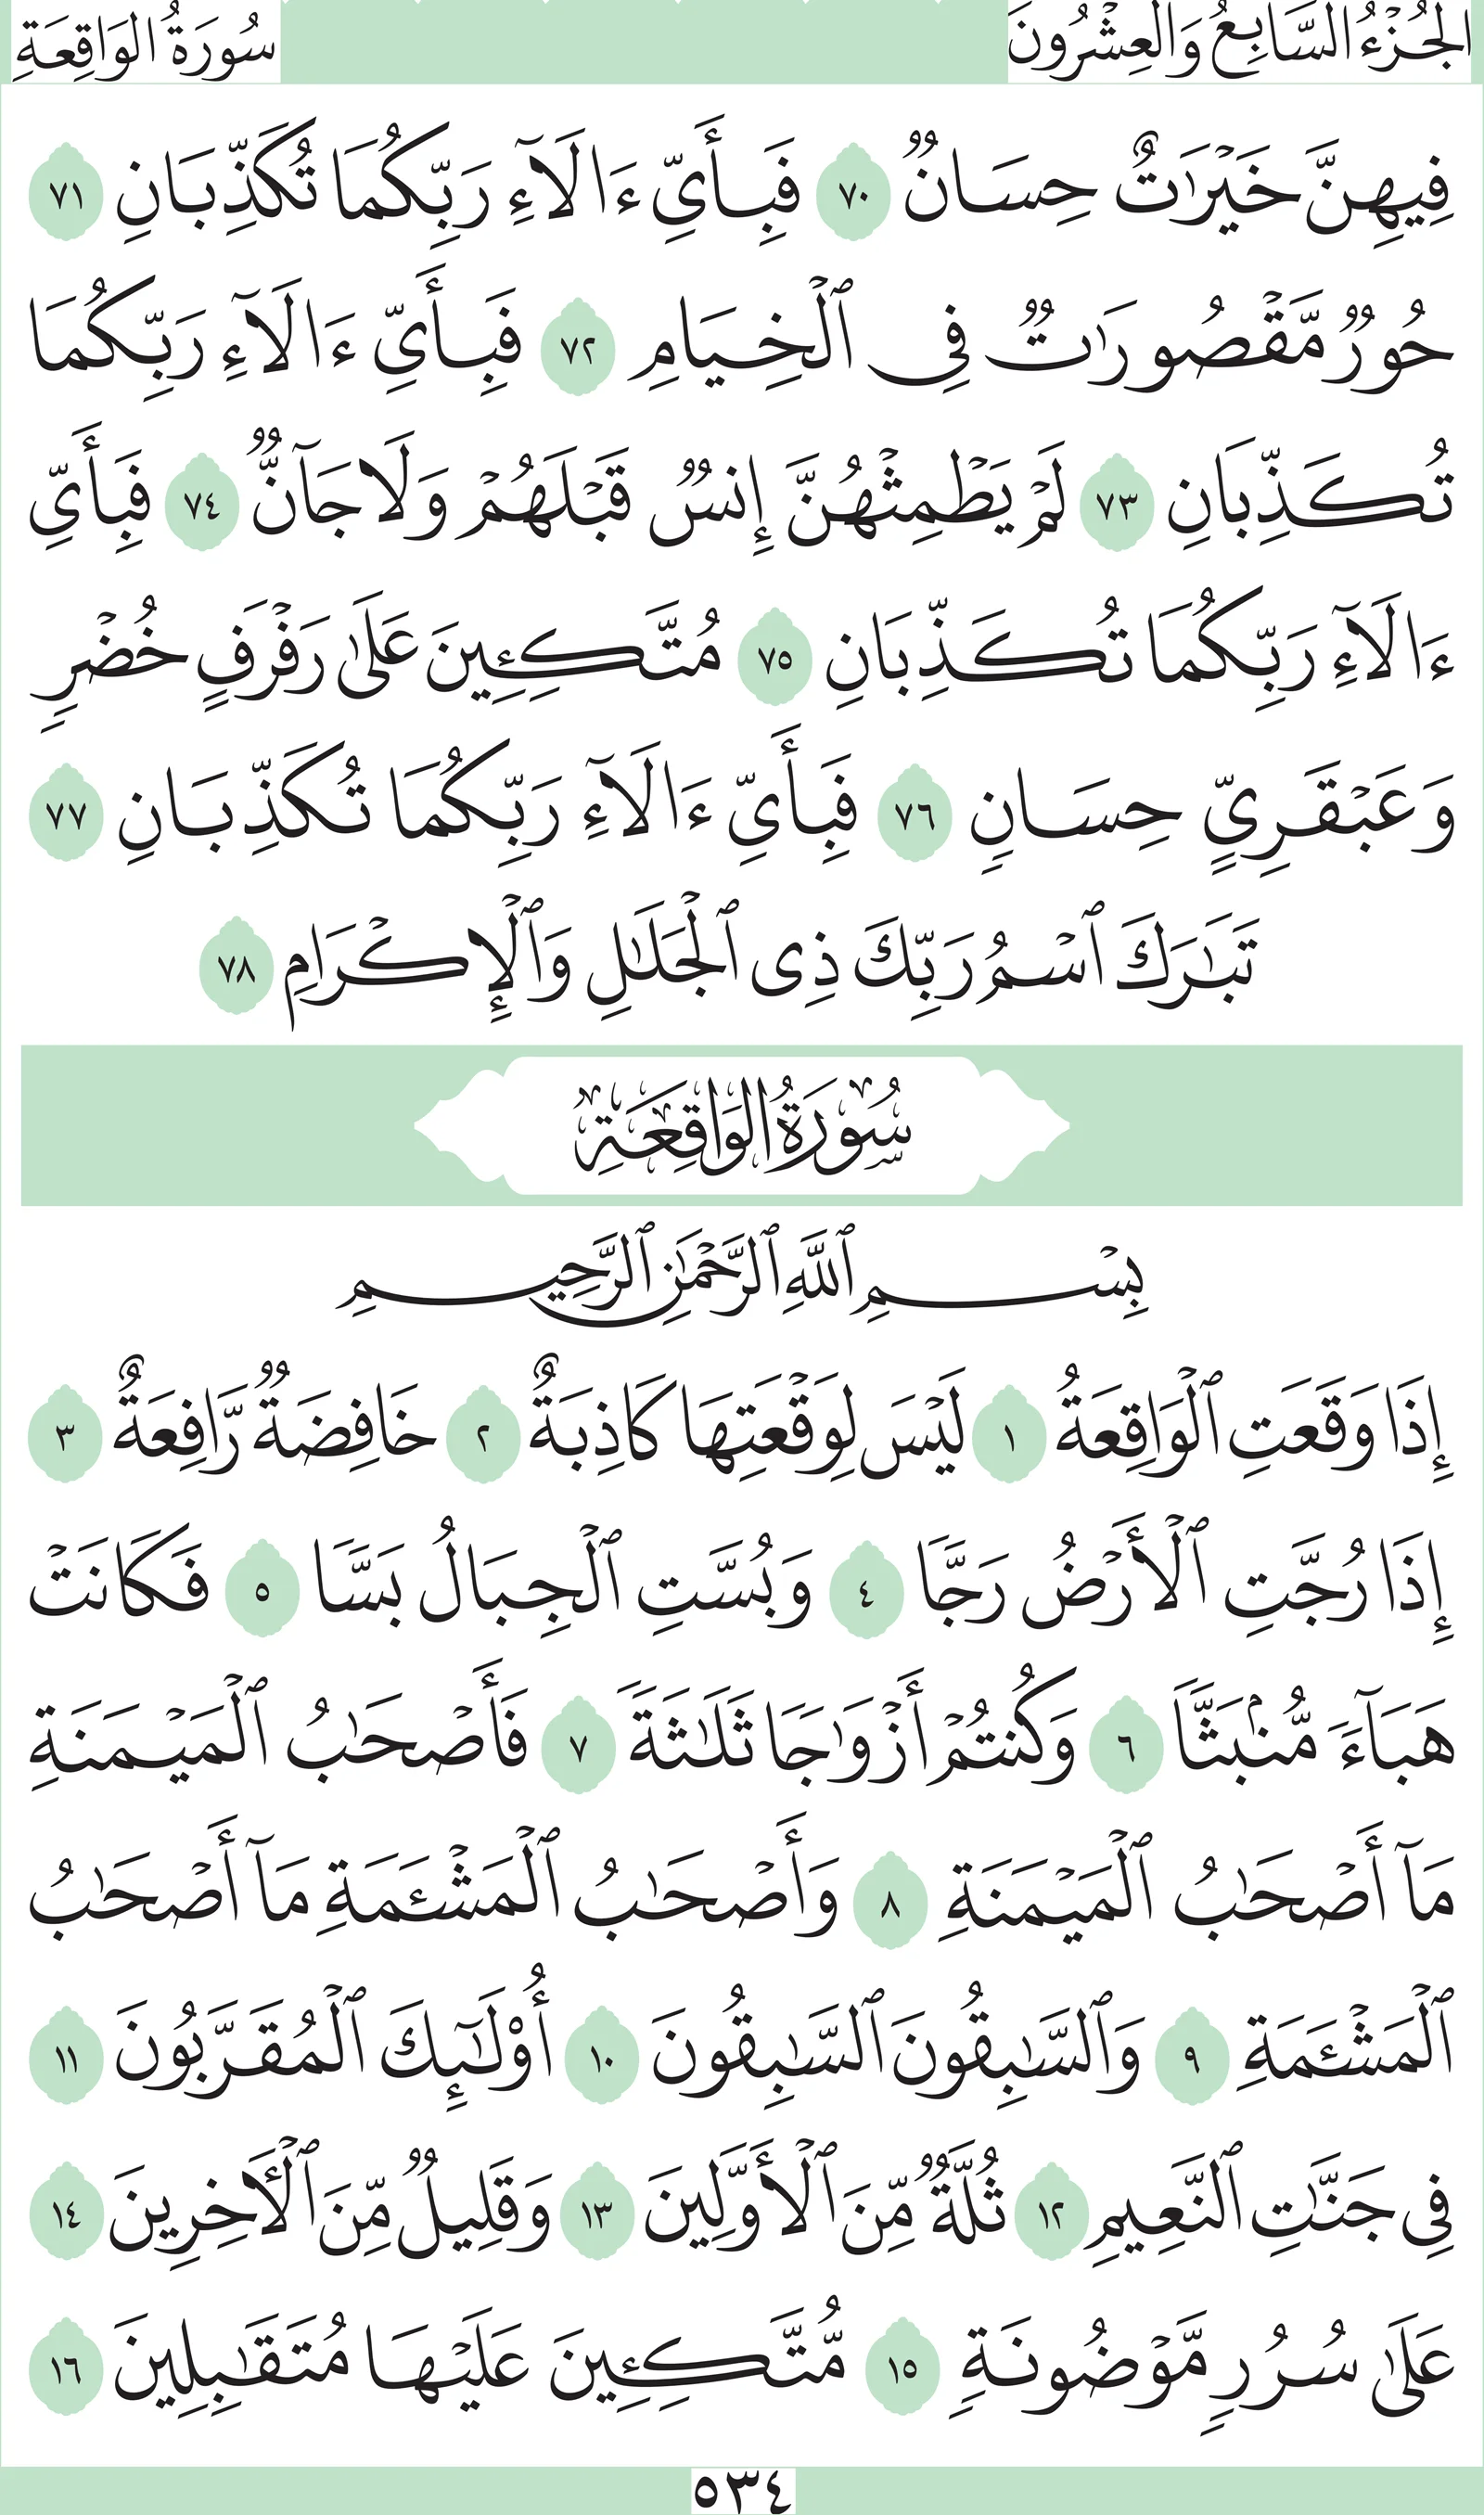 الجُزْءُ السَّابِعُ وَالعِشْرُونَ
سُورَةُ الوَاقِعَةِ
فِيهِنَّ خَيۡرَٰتٌ حِسَانٞ ٧٠ فَبِأَيِّ ءَالَآءِ رَبِّكُمَا تُكَذِّبَانِ ٧١
حُورٞ مَّقۡصُورَٰتٞ فِي ٱلۡخِيَامِ ٧٢ فَبِأَيِّ ءَالَآءِ رَبِّكُمَا
تُكَذِّبَانِ ٧٣ لَمۡ يَطۡمِثۡهُنَّ إِنسٞ قَبۡلَهُمۡ وَلَا جَآنّٞ ٧٤ فَبِأَيِّ
ءَالَآءِ رَبِّكُمَا تُكَذِّبَانِ ٧٥ مُتَّكِـِٔينَ عَلَىٰ رَفۡرَفٍ خُضۡرٖ
وَعَبۡقَرِيٍّ حِسَانٖ ٧٦ فَبِأَيِّ ءَالَآءِ رَبِّكُمَا تُكَذِّبَانِ ٧٧
تَبَٰرَكَ ٱسۡمُ رَبِّكَ ذِي ٱلۡجَلَٰلِ وَٱلۡإِكۡرَامِ ٧٨
سُورَةُ الوَاقِعَةِ
بِسۡمِ ٱللَّهِ ٱلرَّحۡمَٰنِ ٱلرَّحِيمِ
إِذَا وَقَعَتِ ٱلۡوَاقِعَةُ ١ لَيۡسَ لِوَقۡعَتِهَا كَاذِبَةٌ ٢ خَافِضَةٞ رَّافِعَةٌ ٣
إِذَا رُجَّتِ ٱلۡأَرۡضُ رَجّٗا ٤ وَبُسَّتِ ٱلۡجِبَالُ بَسّٗا ٥ فَكَانَتۡ
هَبَآءٗ مُّنۢبَثّٗا ٦ وَكُنتُمۡ أَزۡوَٰجٗا ثَلَٰثَةٗ ٧ فَأَصۡحَٰبُ ٱلۡمَيۡمَنَةِ
مَآ أَصۡحَٰبُ ٱلۡمَيۡمَنَةِ ٨ وَأَصۡحَٰبُ ٱلۡمَشۡـَٔمَةِ مَآ أَصۡحَٰبُ
ٱلۡمَشۡـَٔمَةِ ٩ وَٱلسَّٰبِقُونَ ٱلسَّٰبِقُونَ ١٠ أُوْلَٰٓئِكَ ٱلۡمُقَرَّبُونَ ١١
فِي جَنَّٰتِ ٱلنَّعِيمِ ١٢ ثُلَّةٞ مِّنَ ٱلۡأَوَّلِينَ ١٣ وَقَلِيلٞ مِّنَ ٱلۡأٓخِرِينَ ١٤
عَلَىٰ سُرُرٖ مَّوۡضُونَةٖ ١٥ مُّتَّكِـِٔينَ عَلَيۡهَا مُتَقَٰبِلِينَ ١٦
٥٣٤